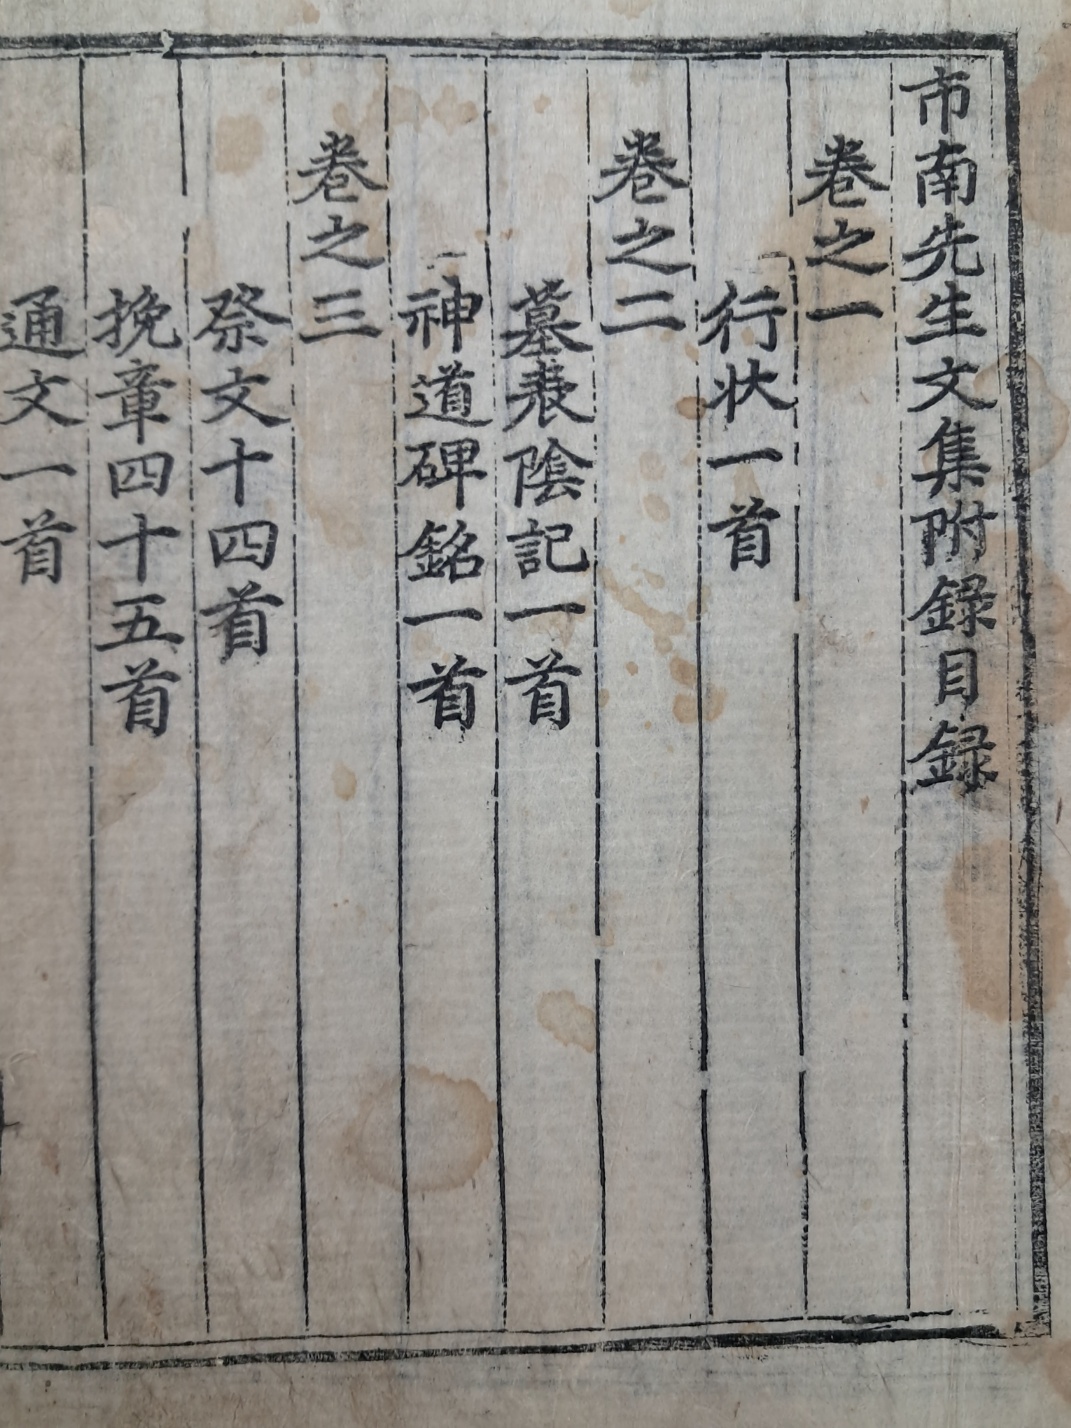 市南先生文集附録目録
卷之一
行狀一首
卷之二
墓表陰記一首
神道碑銘一首
卷之三
祭文十四首
挽章四十五首
通文一首